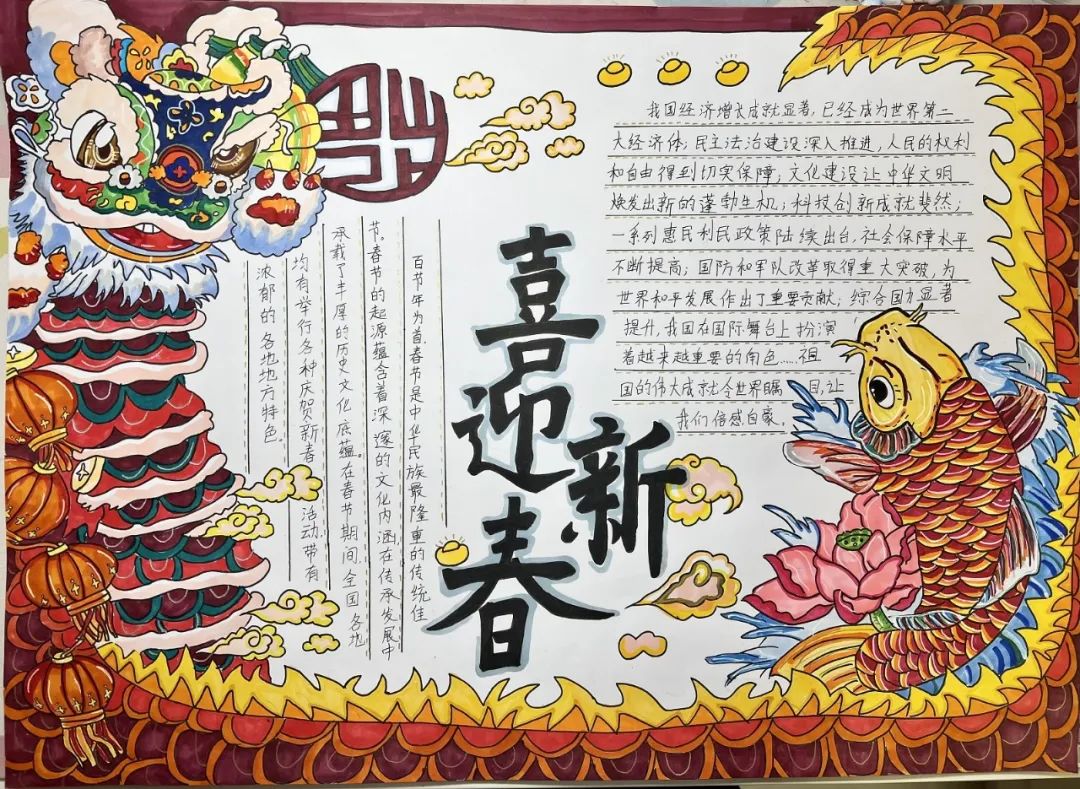 福
百节年为首,春节是中华民族最隆重的传统佳
节。春节的起源蕴含着深邃的文化内涵,在传承发展中
承载了丰厚的历史文化底蕴。在春节期间,全国各地
均有举行各种庆贺新春活动,带有
浓郁的各地地方特色。
喜迎新春
我国经济增长成就显著,已经成为世界第二
大经济体;民主法治建设深入推进,人民的权利
和自由得到切实保障;文化建设让中华文明
焕发出新的蓬勃生机;科技创新成就斐然;
一系列惠民利民政策陆续出台,社会保障水平
不断提高;国防和军队改革取得重大突破,为
世界和平发展作出了重要贡献;综合国力显著
提升,我国在国际舞台上扮演
着越来越重要的角色……祖
国的伟大成就令世界瞩目,让
我们倍感自豪。